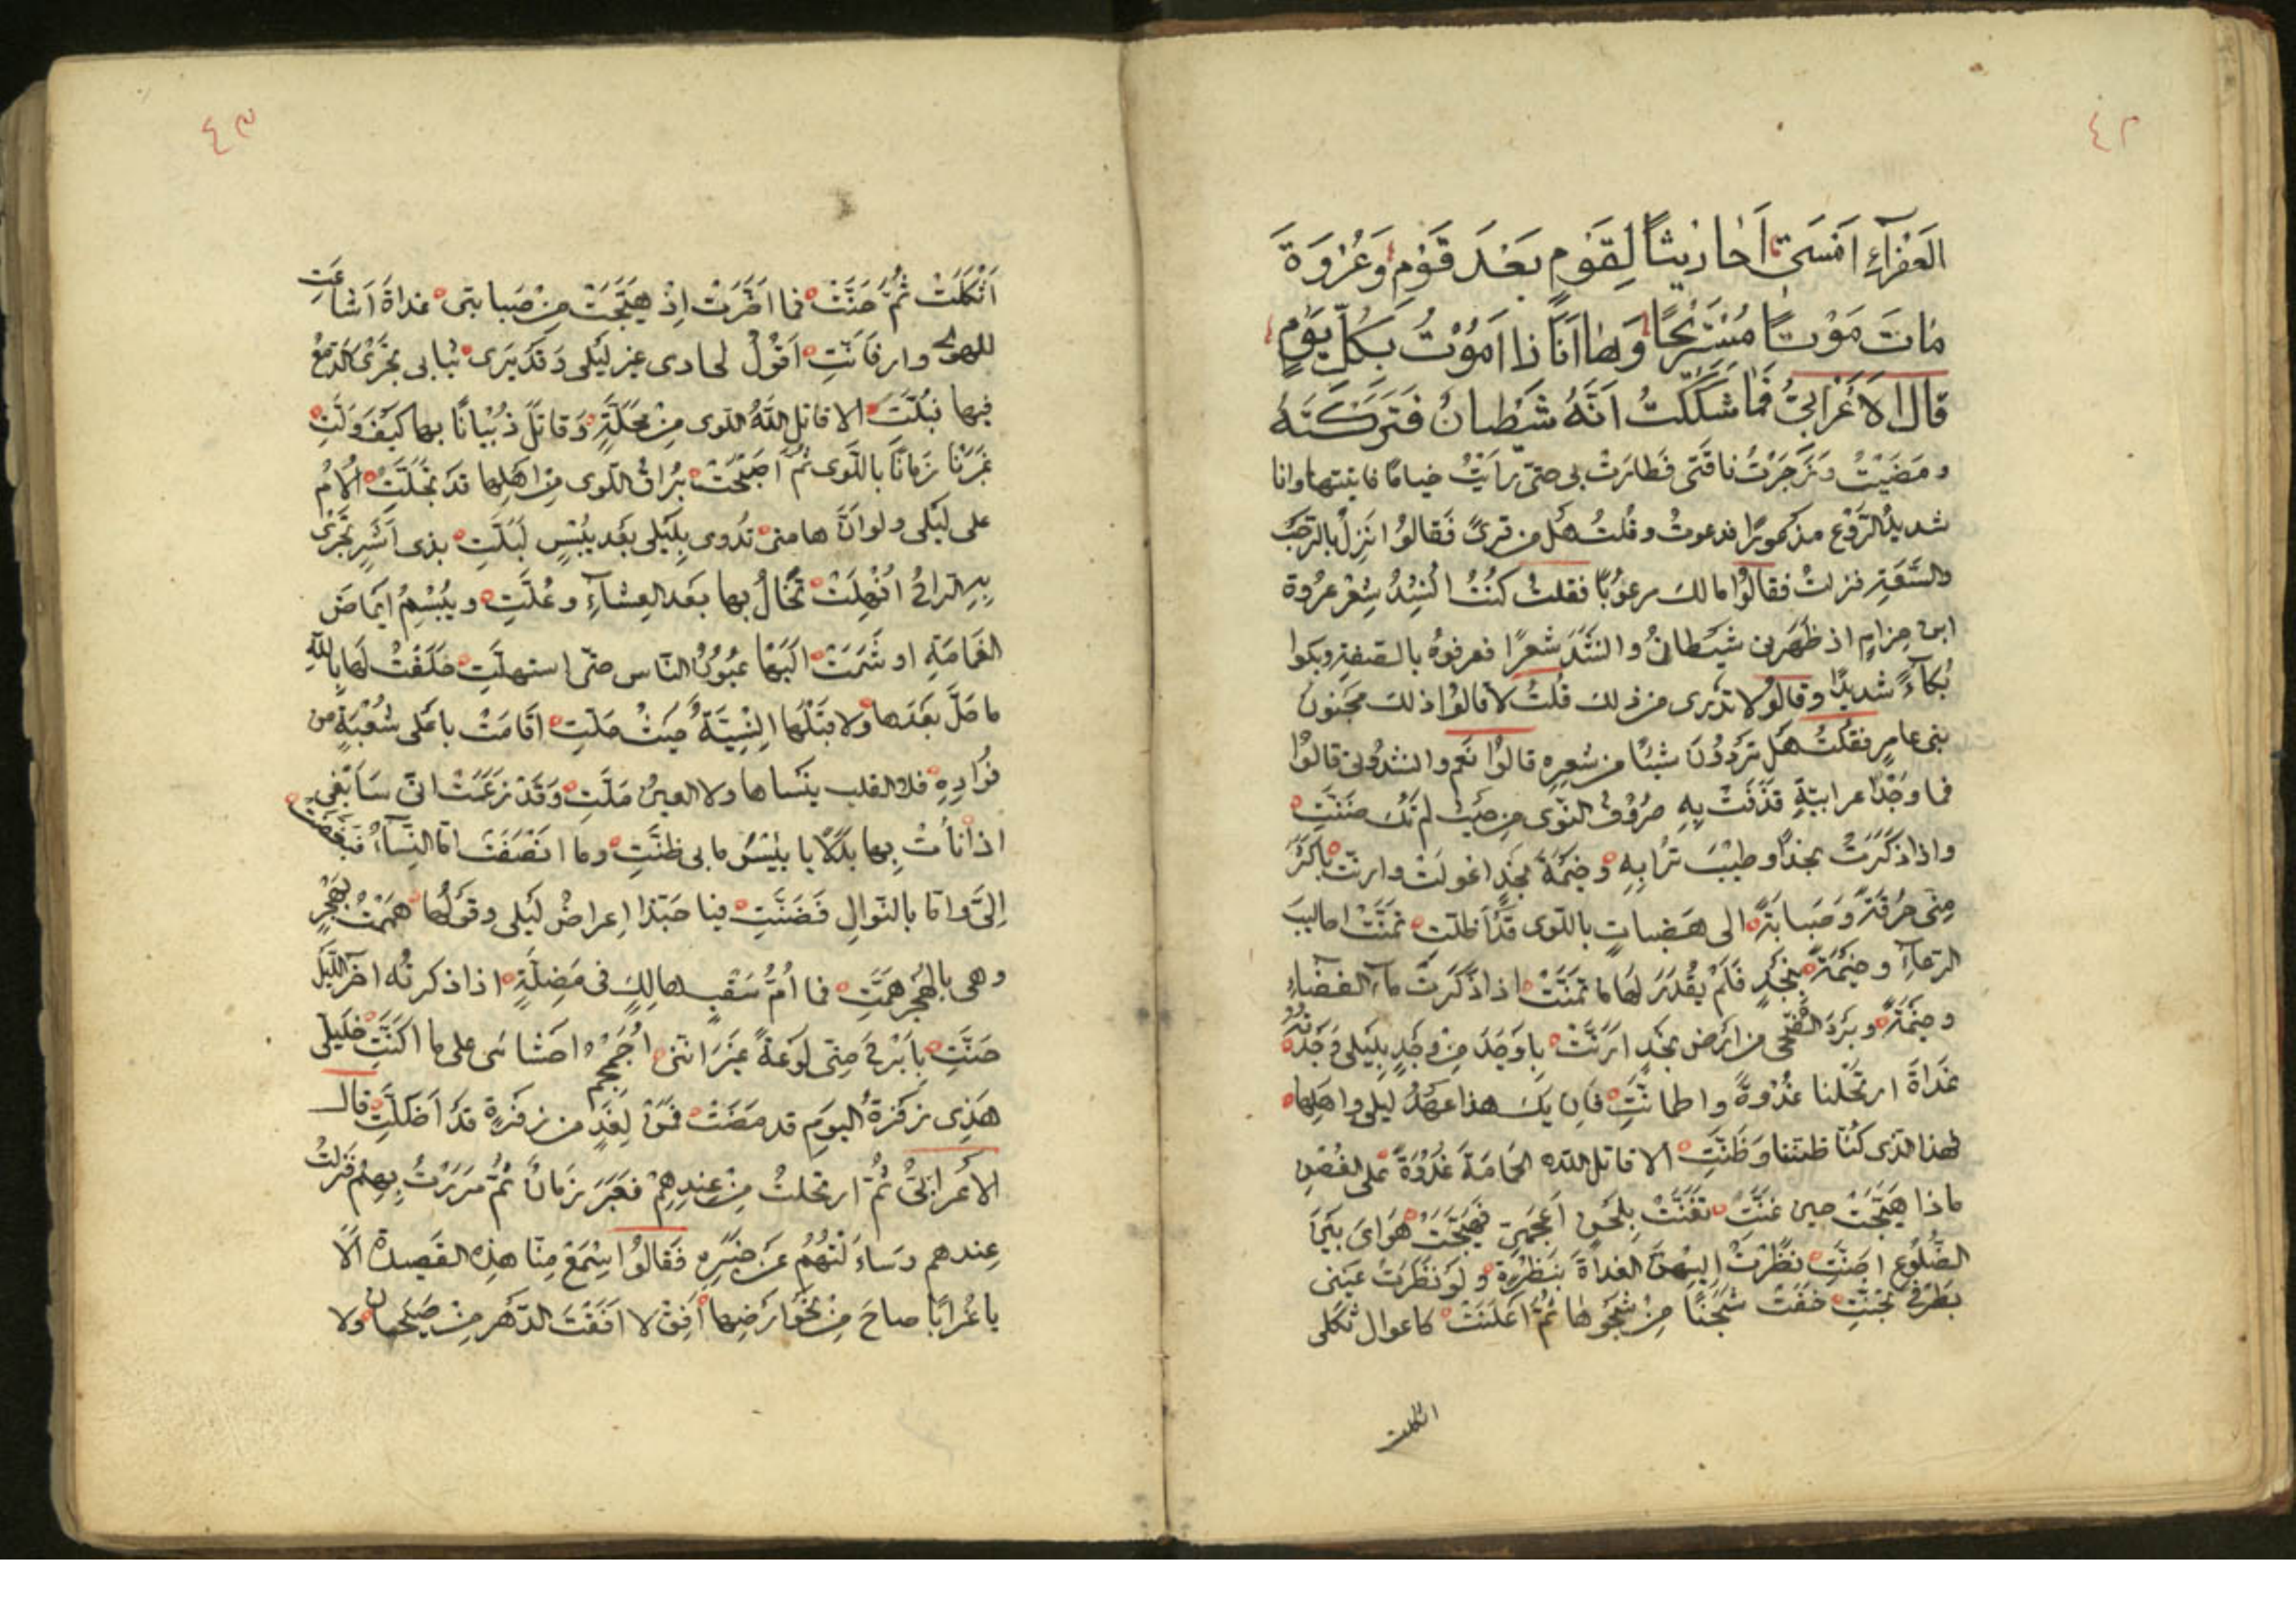 ٤٢
العَفْرَآءِ اَمْسَى اَحَادِيثاً لِقَوْمٍ بَعْدَ قَوْمٍ وَعُرْوَةَ
مَاتَ مَوْتاً مُسْتَرِيحًا وَهَا اَنَا ذَا اَمُوْتُ بِكُلِّ يَوْمٍ
قَالَ الاَعْرَابِيُّ فَمَا شَكَكْتُ اَنَّهُ شَيْطَانٌ فَتَرَكْتُهُ
ومَضَيْتُ وَزَجَرْتُ نَاقَتِى فَطَارَتْ بى حتّى رَاَيْتُ خيامًا فاتيتها وانا
شديدُ الرَّوْعِ مذعورًا فدعوتُ وقُلتُ هَل من قِرىً فَقالوُا اِنْزِلْ بالرَّحْبِ
والسَّعَةِ فنزلتُ فقالوُا مالكَ مرعوُبًا فقلتُ كُنْتُ اُنْشِدُ شِعْرَ عُرْوة
ابن حِزامٍ اذ ظَهَرَ لى شَيْطانٌ وانْشَدَ شعرًا فعرفوهُ بالصّفةِ وبكوا
بُكآءً شديدًا وقالوُا لا تدْرى من ذلك قُلتُ لا قالوُا ذلك مجنون
بنى عامرٍ فقُلتُ هَل تَرْوُونَ شيئًا من شعرِه قالوُا نَعم وانشدُونى قالوُا
فما وَجْدُ اعرابيّةٍ قذَفَتْ بِهِ صُرُوْفُ النَّوَى مِن حيثُ لم تَكُ ضنَّتِ
واذا ذَكَرَتْ نجدًا وطِيْبَ تُرابِهِ وخيْمَةَ نجدٍ اعْوَلَتْ وارنّت باكثرَ
مِنّى حُرْقَةً وَصَبابَةً الى هَضباتٍ باللّوى قدْ اَظلّت تمنَّتْ احاليبَ
الرّعآءِ وخيْمَةً بنجْدٍ فَلَمْ يُقْدَرْ لهَا ما تمَنَّتْ اذا ذَكَرَتْ مآءَ الفضآءِ
وخيْمَةً وبَرْدَ الضُّحى من ارْضِ نجْدٍ ارَنَّتْ بِاَوْجَدَ مِنْ وَجْدٍ بِلَيْلى وَجَدْتُهُ
غَدَاةَ ارتَحَلْنا غُدْوَةً واطمانّتِ فَاِن يَكُ هذا عهْدُ ليلى واهلِها
فهذا الّذى كُنّا ظنَنّا وَظَنَّتِ الا قاتل اللّه الحَمامَةَ غُدْوَةً على الغُصْنِ
ماذا هَيّجَتْ حين غَنَّتِ تغَنَّتْ بِلَحْنٍ اَعْجَمِىّ فهيّجَتْ هَوَاىَ بَيْنَ
الضُّلُوعِ اجنَّتِ نظَرْتُ اِليْهنَّ الغداةَ بنَظْرَةٍ ولَوْ نظَرَتْ عينى
بطَرْفٍ تجَنَّتِ خَفَتْ شَجَنًا مِنْ شَجْوِهَا ثُمَّ اَعْلَنَتْ كاعوال ثكلى
اثكلت
٤٣
اَثْكَلَتْ ثُمَّ حَنَّتْ فما اَضَرَّتْ اِذْ هَيَّجَتْ مِنْ صَبابتى غداةَ اَشاعَتِ
للهوى وارفَانَّتِ اَقُوْلُ لحادى عِيرِ ليْلى وَقَدْ يَرَى ثيابى يجْرِى الدّمعُ
فيها فبُلَّت الا قاتل اللّهُ اللّوى مِنْ مَحَلّةٍ وقاتَل ذُبْيَانًا بها كيف وَلّتِ
غَبَرْنا زَمانًا باللّوى ثُمّ اَصْبَحَتْ بُراقُ اللّوى مِنْ اَهْلِها قد تخَلَّتْ اُلامُ
على ليْلى ولوْ اَنّ هامتى تُدْوى بِلَيْلى بعد يُبْسٍ لَبَلَّتِ بذى اَشَرٍ تجْرى
بِهِ الراحُ اُنْهِلَتْ تَخالُ بها بعْد العِشآءِ وعُلَّتِ ويَبْسِمُ ايمَاضَ
الغَمامَةِ او سَمَتْ اليْها عُيُونُ النّاسِ حتّى استهلّتِ حَلَفْتُ لهَا بِاللهِ
ما حَلّ بعْدَها ولا قبْلَها اِنْسِيَّةٌ حيثُ حلّتِ اقامَتْ باعْلى شُعْبَةٍ من
فُؤادِهِ فلا القلب ينْساها ولا العينُ ملّتِ وَقَدْ زعَمَتْ انّى سَاَبْغِى
اذا نأتْ بِها بدَلاً يا بِئْسَ ما بى ظنّتِ وما انْصَفَتْ امّا النّسآءُ فبَغّضَتْ
اِلىَّ وامّا بالنّوالِ فَضَنَّتِ فيا حبّذا اِعراضُ ليْلى وقَوْلُها هَمَمْتُ بهَجْرٍ
وهى بالهجْرِ همّتِ فما اُمُّ سَقْبٍ هالِكٍ فى مَضِلَّةٍ اذا ذكرتُه اخرَ اللّيلِ
حَنّتِ بِاَبْرَحَ مِنّى لَوْعَةً غيْرَ انّنى اُجَمْجِمُ احشائى على ما اكنّتِ خليلىّ
هذِى زَفْرَةُ اليومِ قد مَضَتْ فمَنْ لِغَدٍ من زفْرَةٍ قد اَظلّتِ قال
الاَعْرابىُّ ثُمّ ارتحلتُ مِنْ عِندِهِمْ فغَبَرَ زَمانٌ ثُمّ مَرَرْتُ بِهِمْ فَنزلْتُ
عِندهم وسَاءَلْتُهُمْ عَنْ خبَرِهِ فَقالوُا اِسْمَعْ مِنّا هذِه القَصيدة اَلاَ
يا غُرابًا صاحَ مِنْ نحْوِ ارْضِها اَفِقْ لا اَفَقْتَ الدّهْر مِنْ صَيَحانٍ ولا